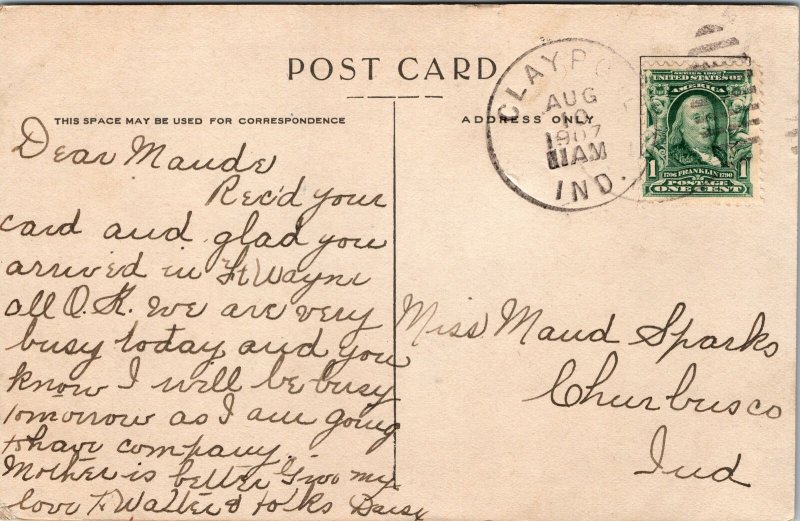 POST CARD
THIS SPACE MAY BE USED FOR CORRESPONDENCE
ADDRESS ONLY
AUG
10
1907
11AM
IND.
SERIES 1902
UNITED STATES OF
AMERICA
1 1706 FRANKLIN 1790 1
POSTAGE
ONE CENT
Dear Maude
Rec'd your
card and glad you
arrived in Ft Wayne
all O.K. We are very
busy today and you
know I will be busy
tomorrow as I am going
to have company.
Mother is better Give my
love to Walter & folks Daisy
Miss Maud Sparks
Churbusco
Ind